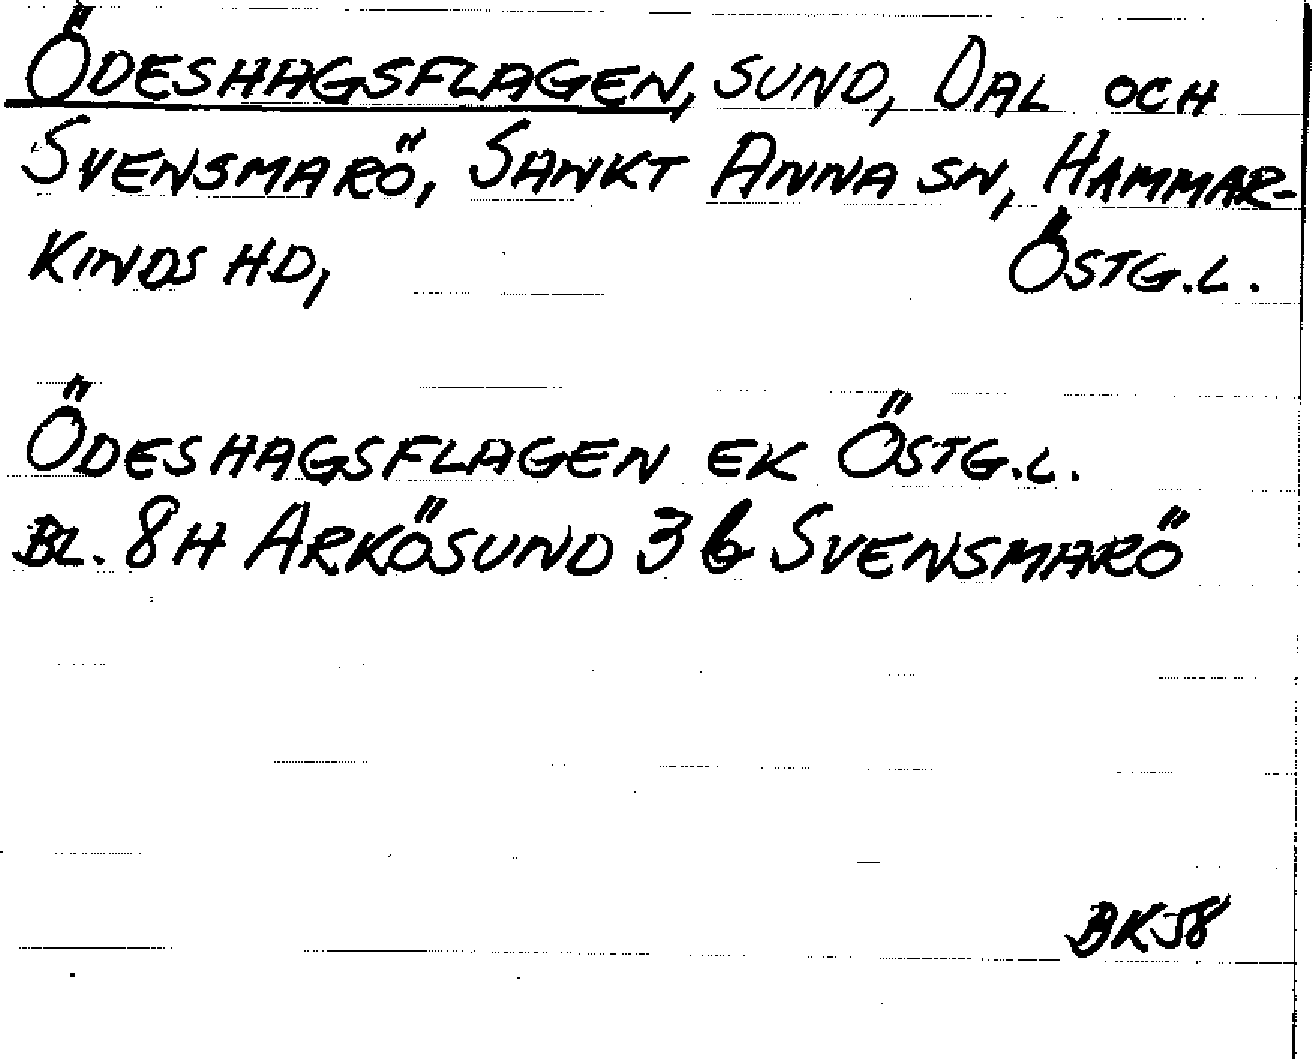 ÖDESHAGSFLAGEN, SUND, DAL OCH
SVENSMARÖ, SANKT ANNA SN, HAMMAR-
KINDS HD, ÖSTG.L.
ÖDESHAGSFLAGEN EK ÖSTG.L.
BL. 8H ARKÖSUND 3 b SVENSMARÖ
BK58